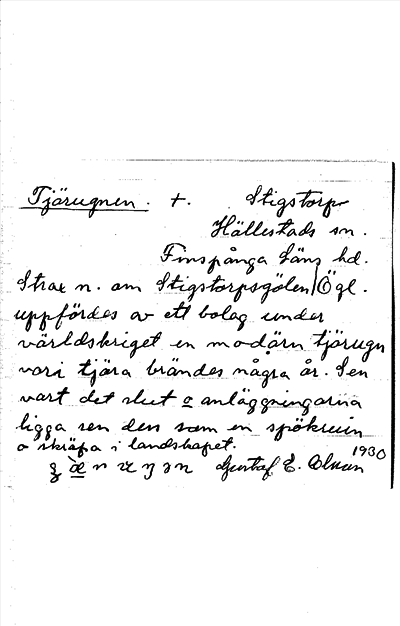 Tjärugnen. +. Stigstorp
Hällestads sn.
Finspånga läns hd.
Strax n. om Stigstorpsgölen Ögl.
uppfördes av ett bolag under
världskriget en modärn tjärugn
vari tjära brändes några år. Sen
vart det slut o anläggningarna
ligga sen dess som en spökruin
o skräpa i landskapet.
1930
Gustaf E.